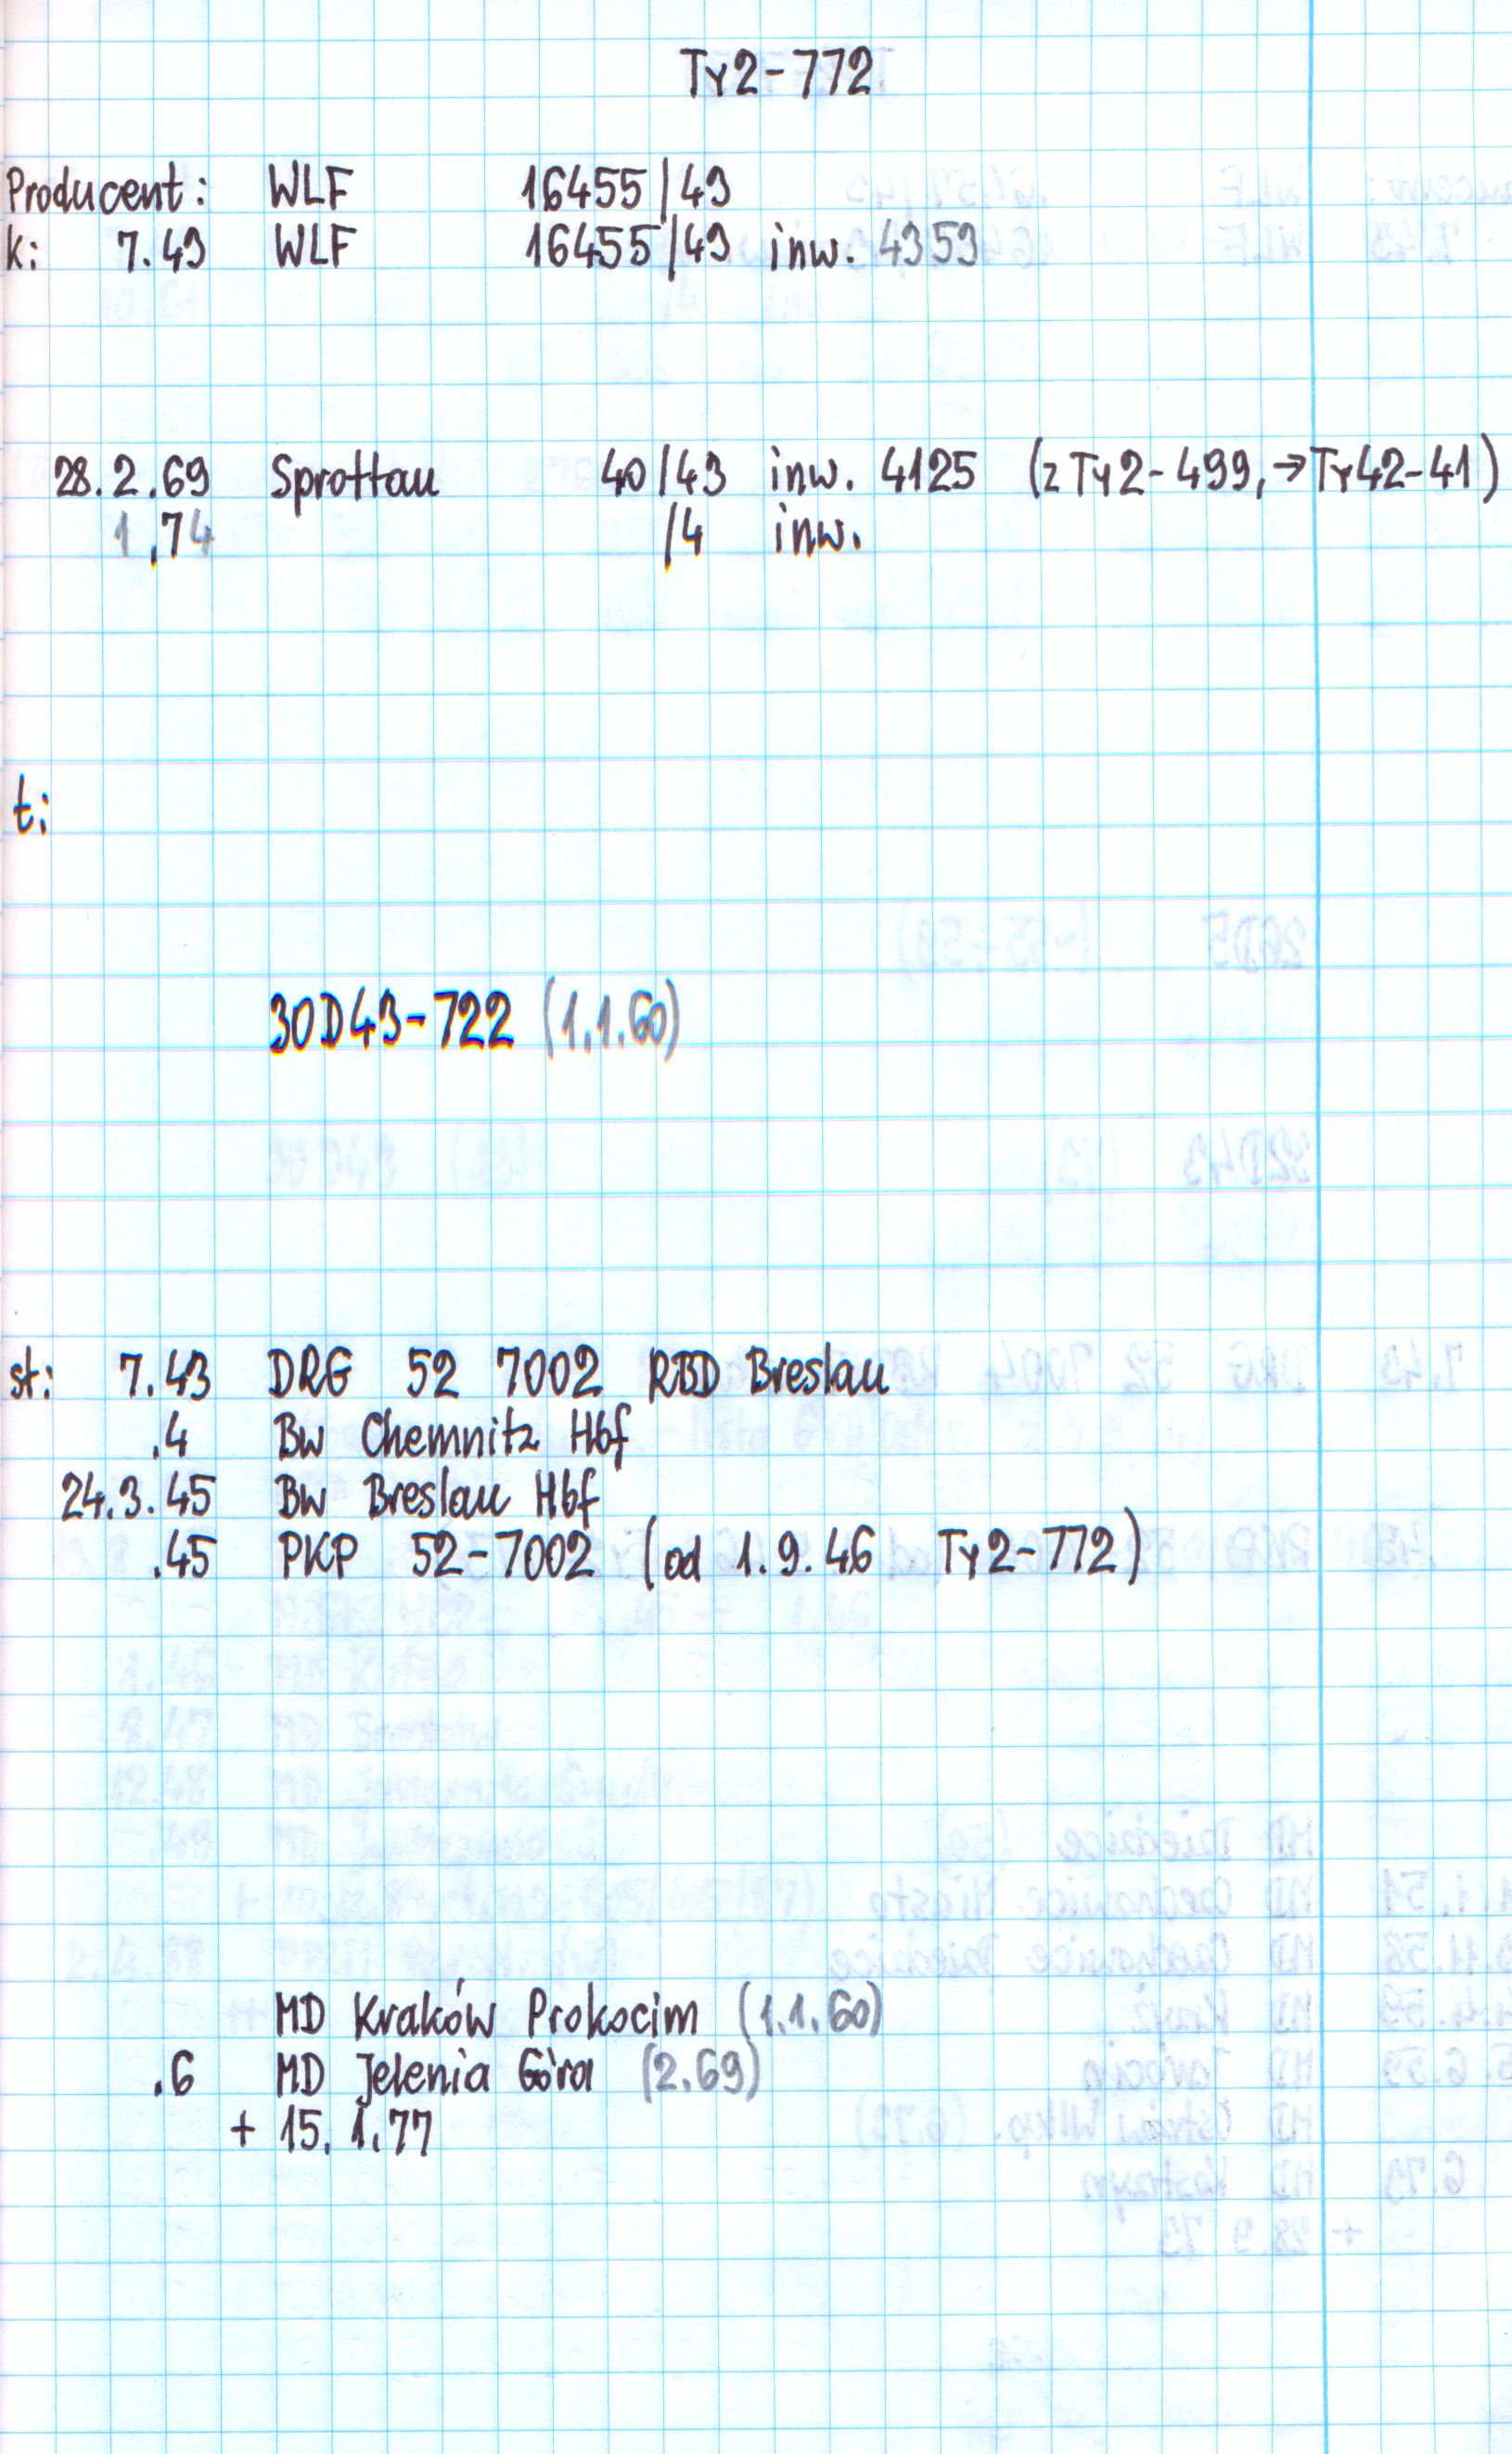 Ty2-772
Producent: WLF 16455/43
k: 7.43 WLF 16455/43 inw. 4359
28.2.69 Sprottau 40/43 inw. 4125 (z Ty2-499, →Ty42-41)
1.74 /4 inw.
t:
30D43-722 (1.1.60)
st: 7.43 DRG 52 7002 RBD Breslau
.4 Bw Chemnitz Hbf
24.3.45 Bw Breslau Hbf
.45 PKP 52-7002 (od 1.9.46 Ty2-772)
MD Kraków Prokocim (1.1.60)
.6 MD Jelenia Góra (2.69)
+ 15.1.77